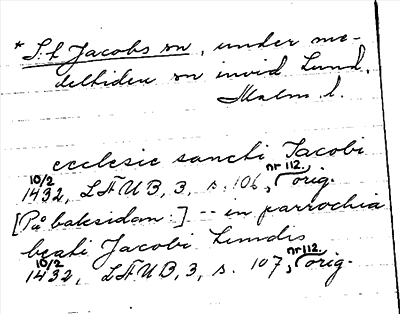 * S:t Jacobs sn, under me-
deltiden sn invid Lund,
Malm l.
ecclesie sancti Jacobi
10/2 1432, LÄUB, 3, s. 106, nr 112. orig.
[På baksidan:] -- in parrochia
beati Jacobi Lundis
10/2 1432, LÄUB, 3, s. 107, nr 112. orig.